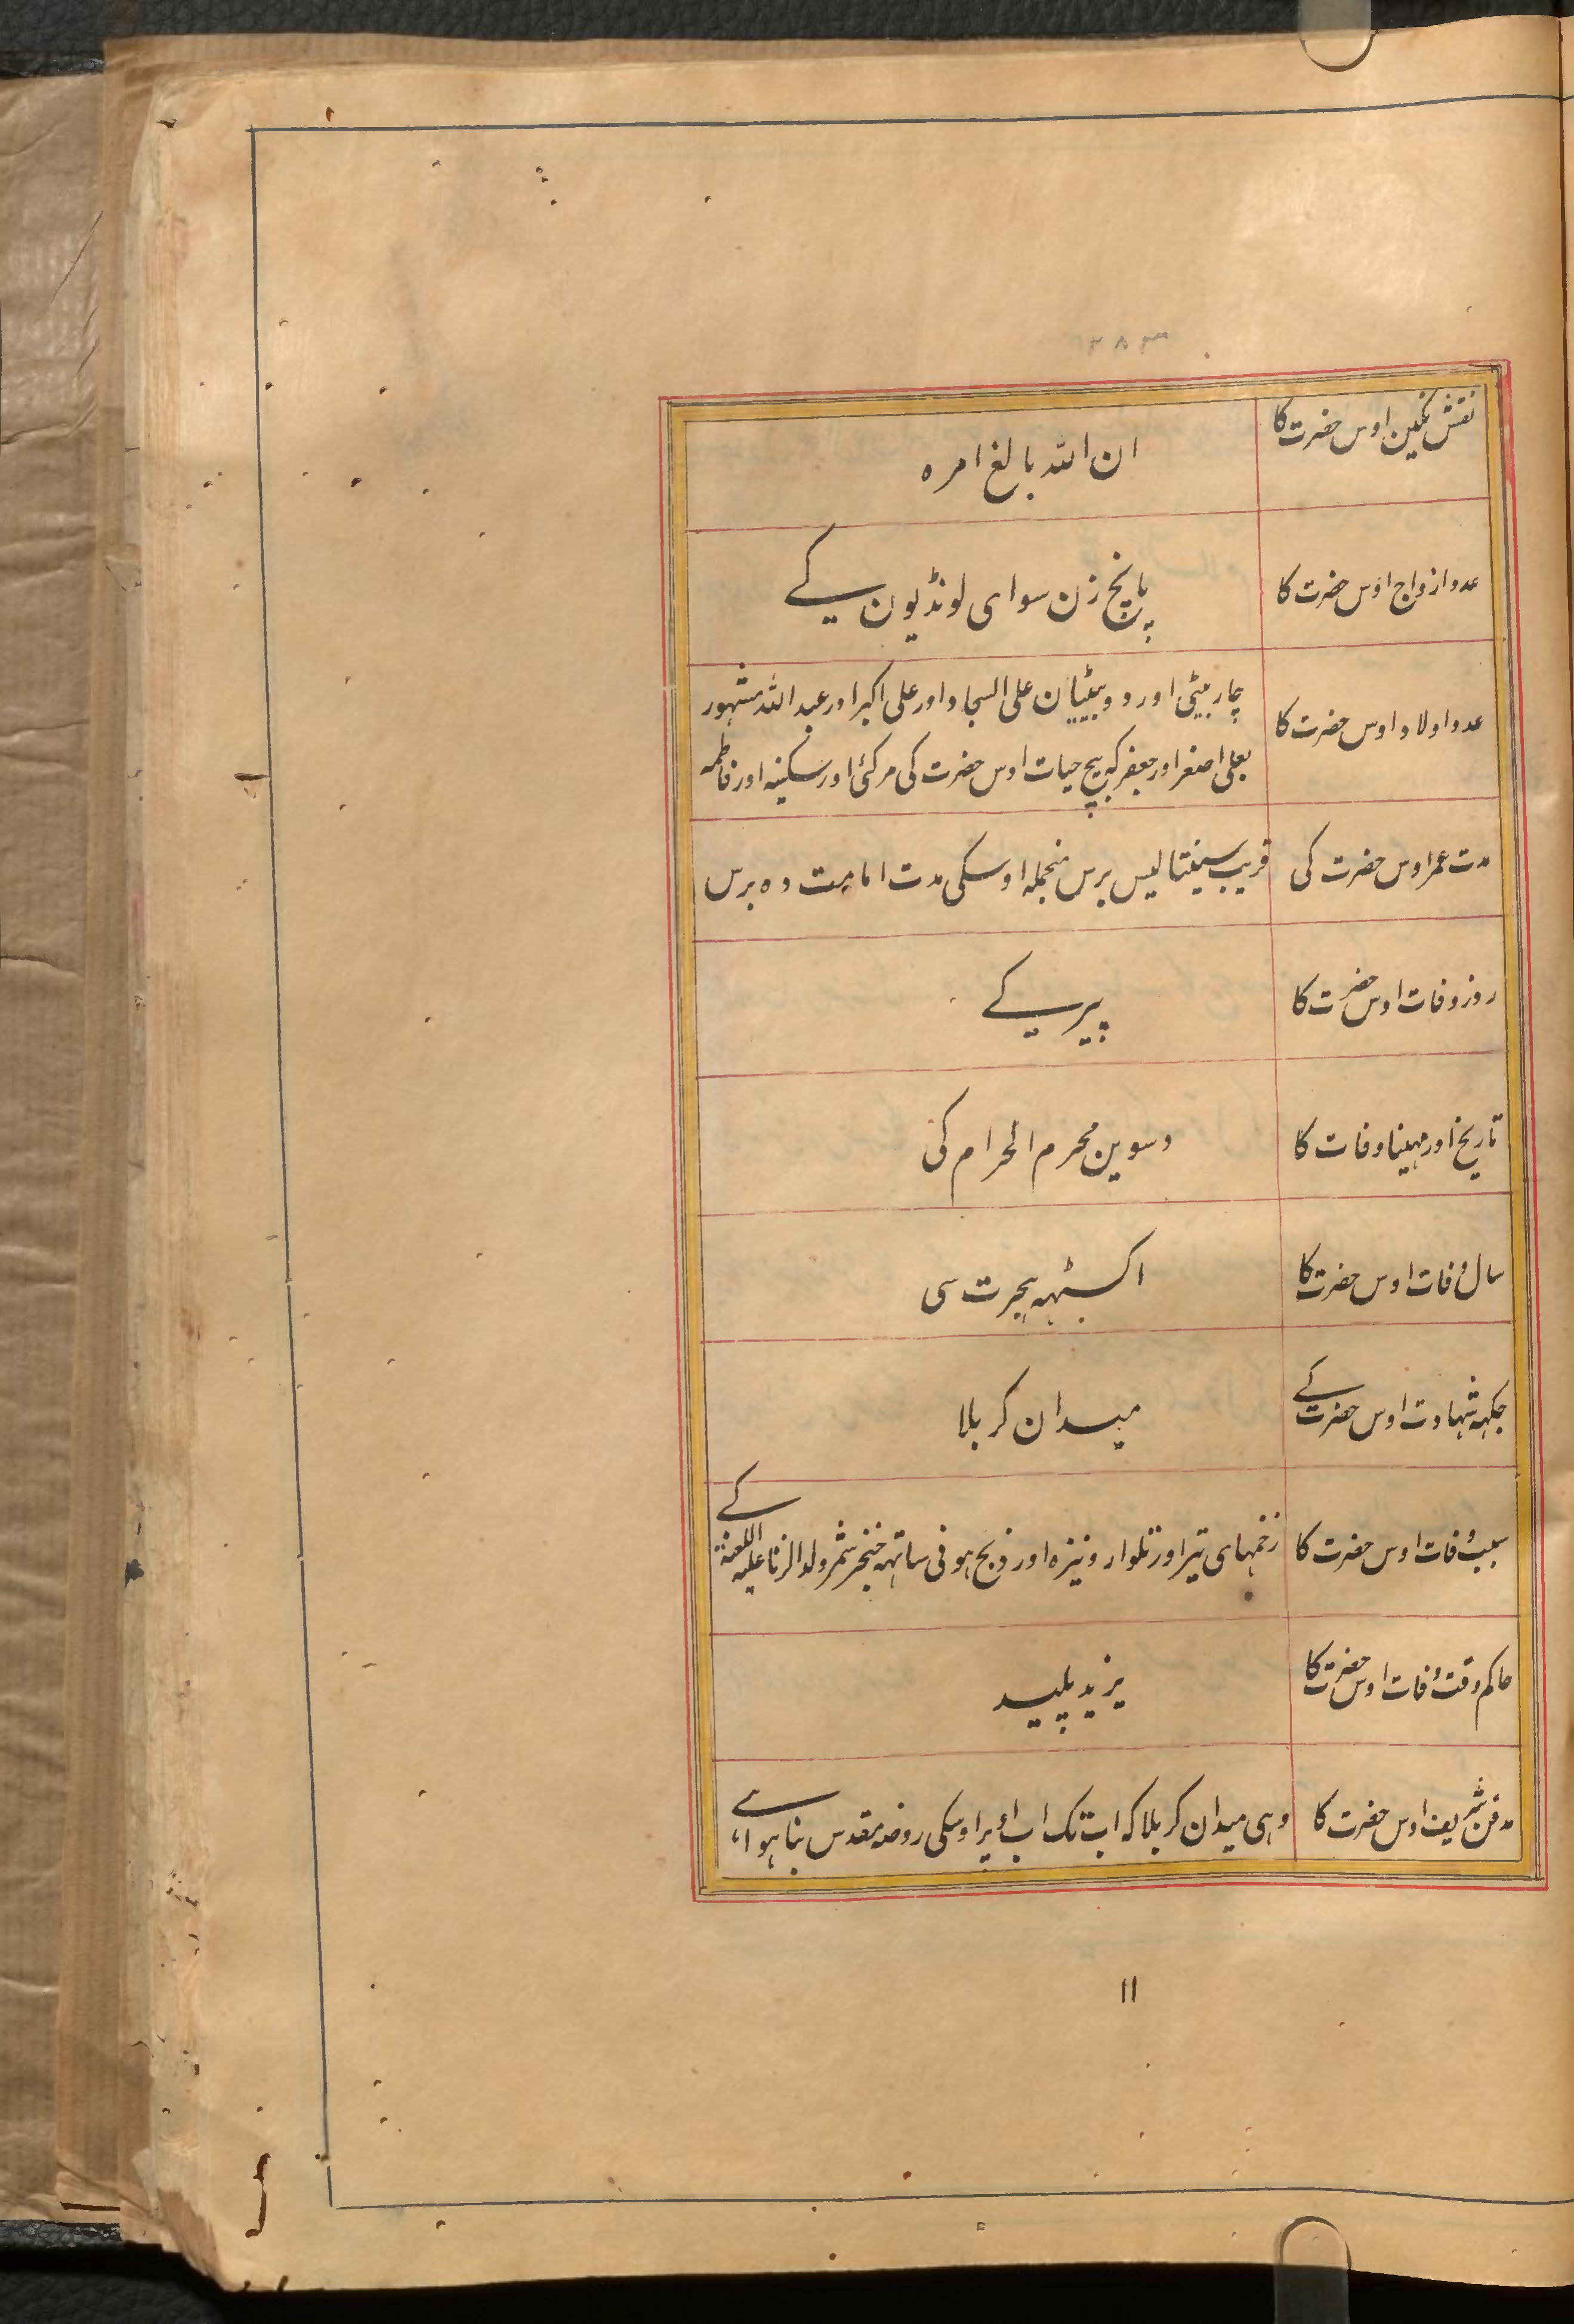 ۲۸۳
نقش نگین اوس حضرت کا
ان اللہ بالغ امرہ
عدد ازواج اوس حضرت کا
پانچ زن سوای لونڈیون کے
عدد اولاد اوس حضرت کا
چار بیٹی اور دو بیٹیان علی السجاد اور علی اکبر اور عبداللہ مشہور
بعلی اصغر اور جعفر کہ بیچ حیات اوس حضرت کی مرگئی اور سکینہ اور فاطمہ
مدت عمر اوس حضرت کی
قریب سینتالیس برس منجملہ اوسکی مدت امامت دہ برس
روز وفات اوس حضرت کا
پیر کے
تاریخ اور مہینا وفات کا
دسوین محرم الحرام کی
سال وفات اوس حضرت کا
اکسٹہہ ہجرت سی
جگہہ شہادت اوس حضرت کے
میدان کربلا
سبب وفات اوس حضرت کا
زخمہای تیر اور تلوار و نیزہ اور ذبح ہونی ساتہہ خنجر شمر ولد الزنا علیہ اللعنۃ کے
حاکم وقت وفات اوس حضرت کا
یزید پلید
مدفن شریف اوس حضرت کا
وہی میدان کربلا کہ اب تک اوسکی روضہ مقدس بنا ہوا ہے
۱۱